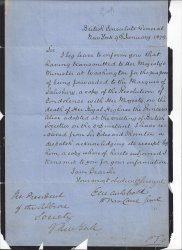 British Consulate General
New York 9th February 18
Sir
I beg leave to inform you that
having transmitted to Her Majesty's
Minister at Washington for the purpose
of being forwarded to the Marquis of
Salisbury, a copy of the Resolution of
Condolence with Her Majesty on the
death of Her Royal Highness the Princess
Alice adopted at the meeting of British
Societies on the Ultimo I have
received from Sir Edward Thornton a
despatch acknowledging its receipt by
him, a copy of which I have the honour
to transmit to you for your information
I am Dear Sir
Your most obedient Servant
E. M. Archibald
The President
of the St George
Society
of New York